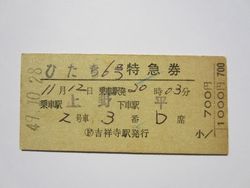 ひたち6号 特急券
11月12日 乗車駅発20時03分
乗車駅 上野 下車駅 平
2号車 3番 D席
吉祥寺駅発行
49.10.28
700円
小/